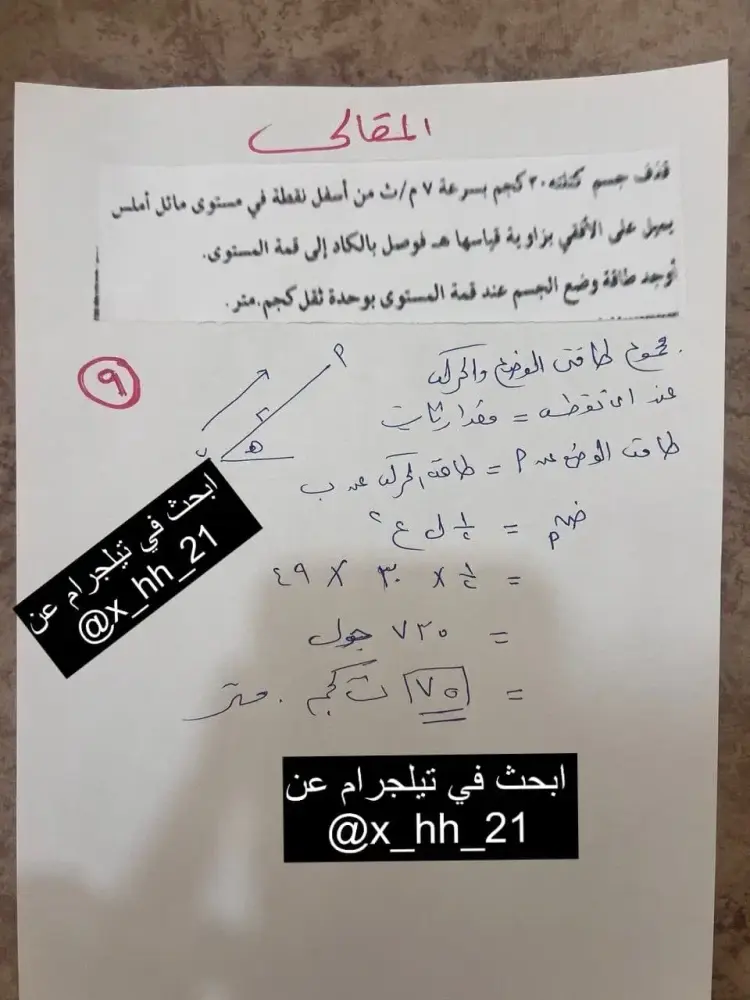 المقالى
قذف جسم كتلته ٣٠ كجم بسرعة ٧ م/ث من أسفل نقطة في مستوى مائل أملس
يميل على الأفقي بزاوية قياسها هـ فوصل بالكاد إلى قمة المستوى.
أوجد طاقة وضع الجسم عند قمة المستوى بوحدة ثقل كجم.متر.
٩
مجموع طاقتى الوضع والحركه
عند اى نقطه = مقدار ثابت
طاقة الوضع عند م = طاقة الحركه عند ب
ضم = ١/٢ ل ع ٢
= ١/٢ × ٣٠ × ٤٩
= ٧٣٥ جول
= ٧٥ ث كجم . متر
م
ر
هـ
ب
ابحث في تيلجرام عن
@x_hh_21
ابحث في تيلجرام عن
@x_hh_21